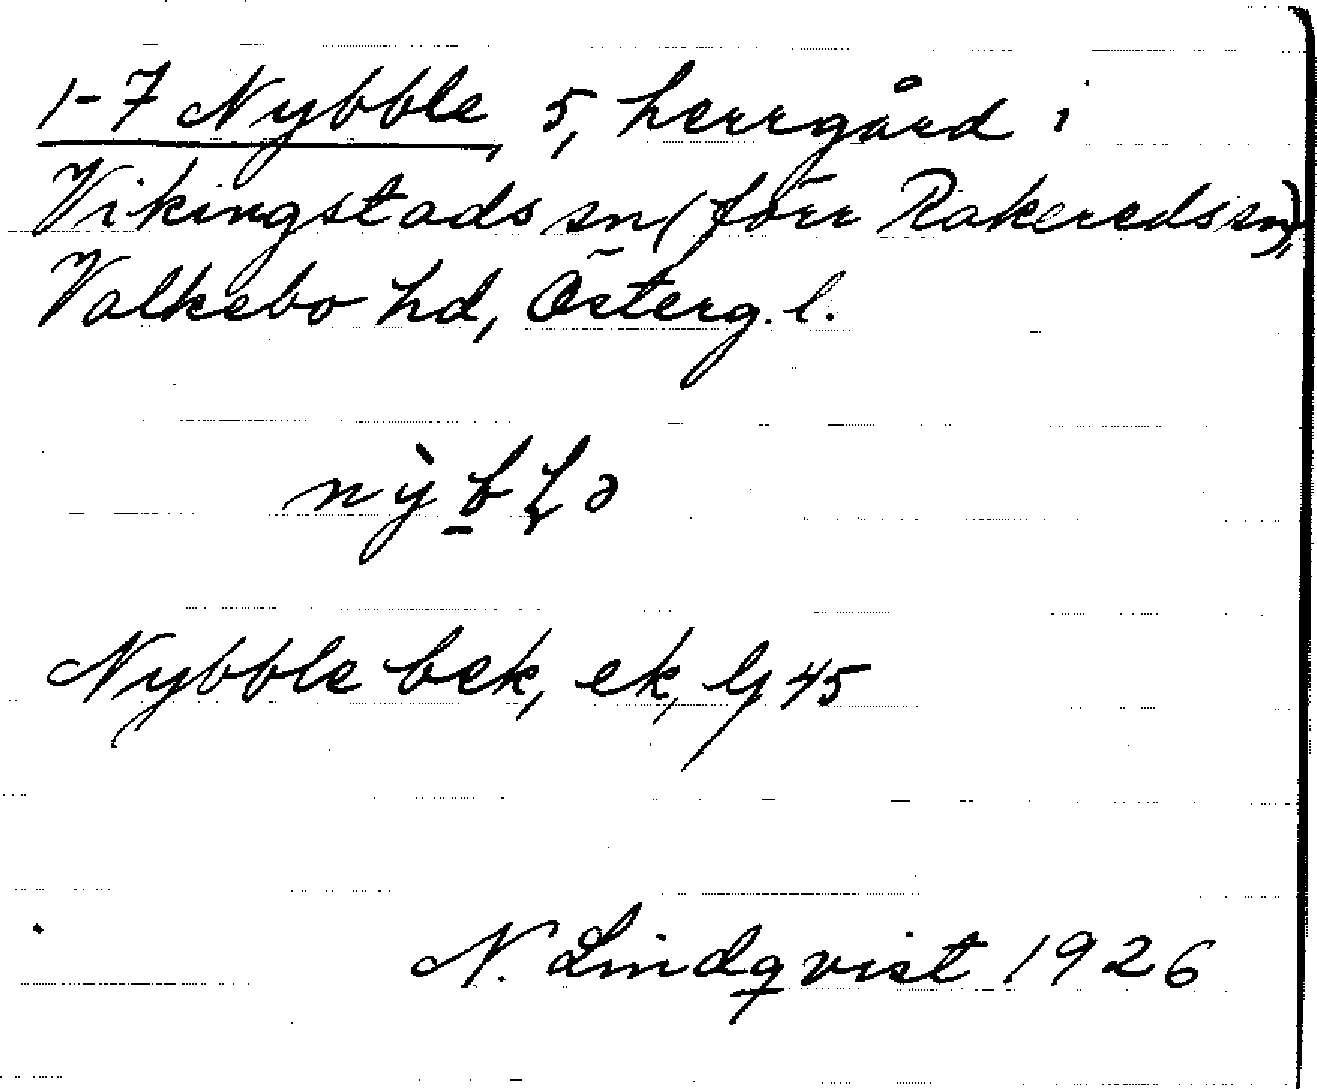 1-7 Nybble, 5, herrgård i
Vikingstads sn (förr Rakereds sn),
Valkebo hd, Österg. l.
nỳb̲ɫə
Nybble bek, ek, lj 45
N. Lindqvist 1926